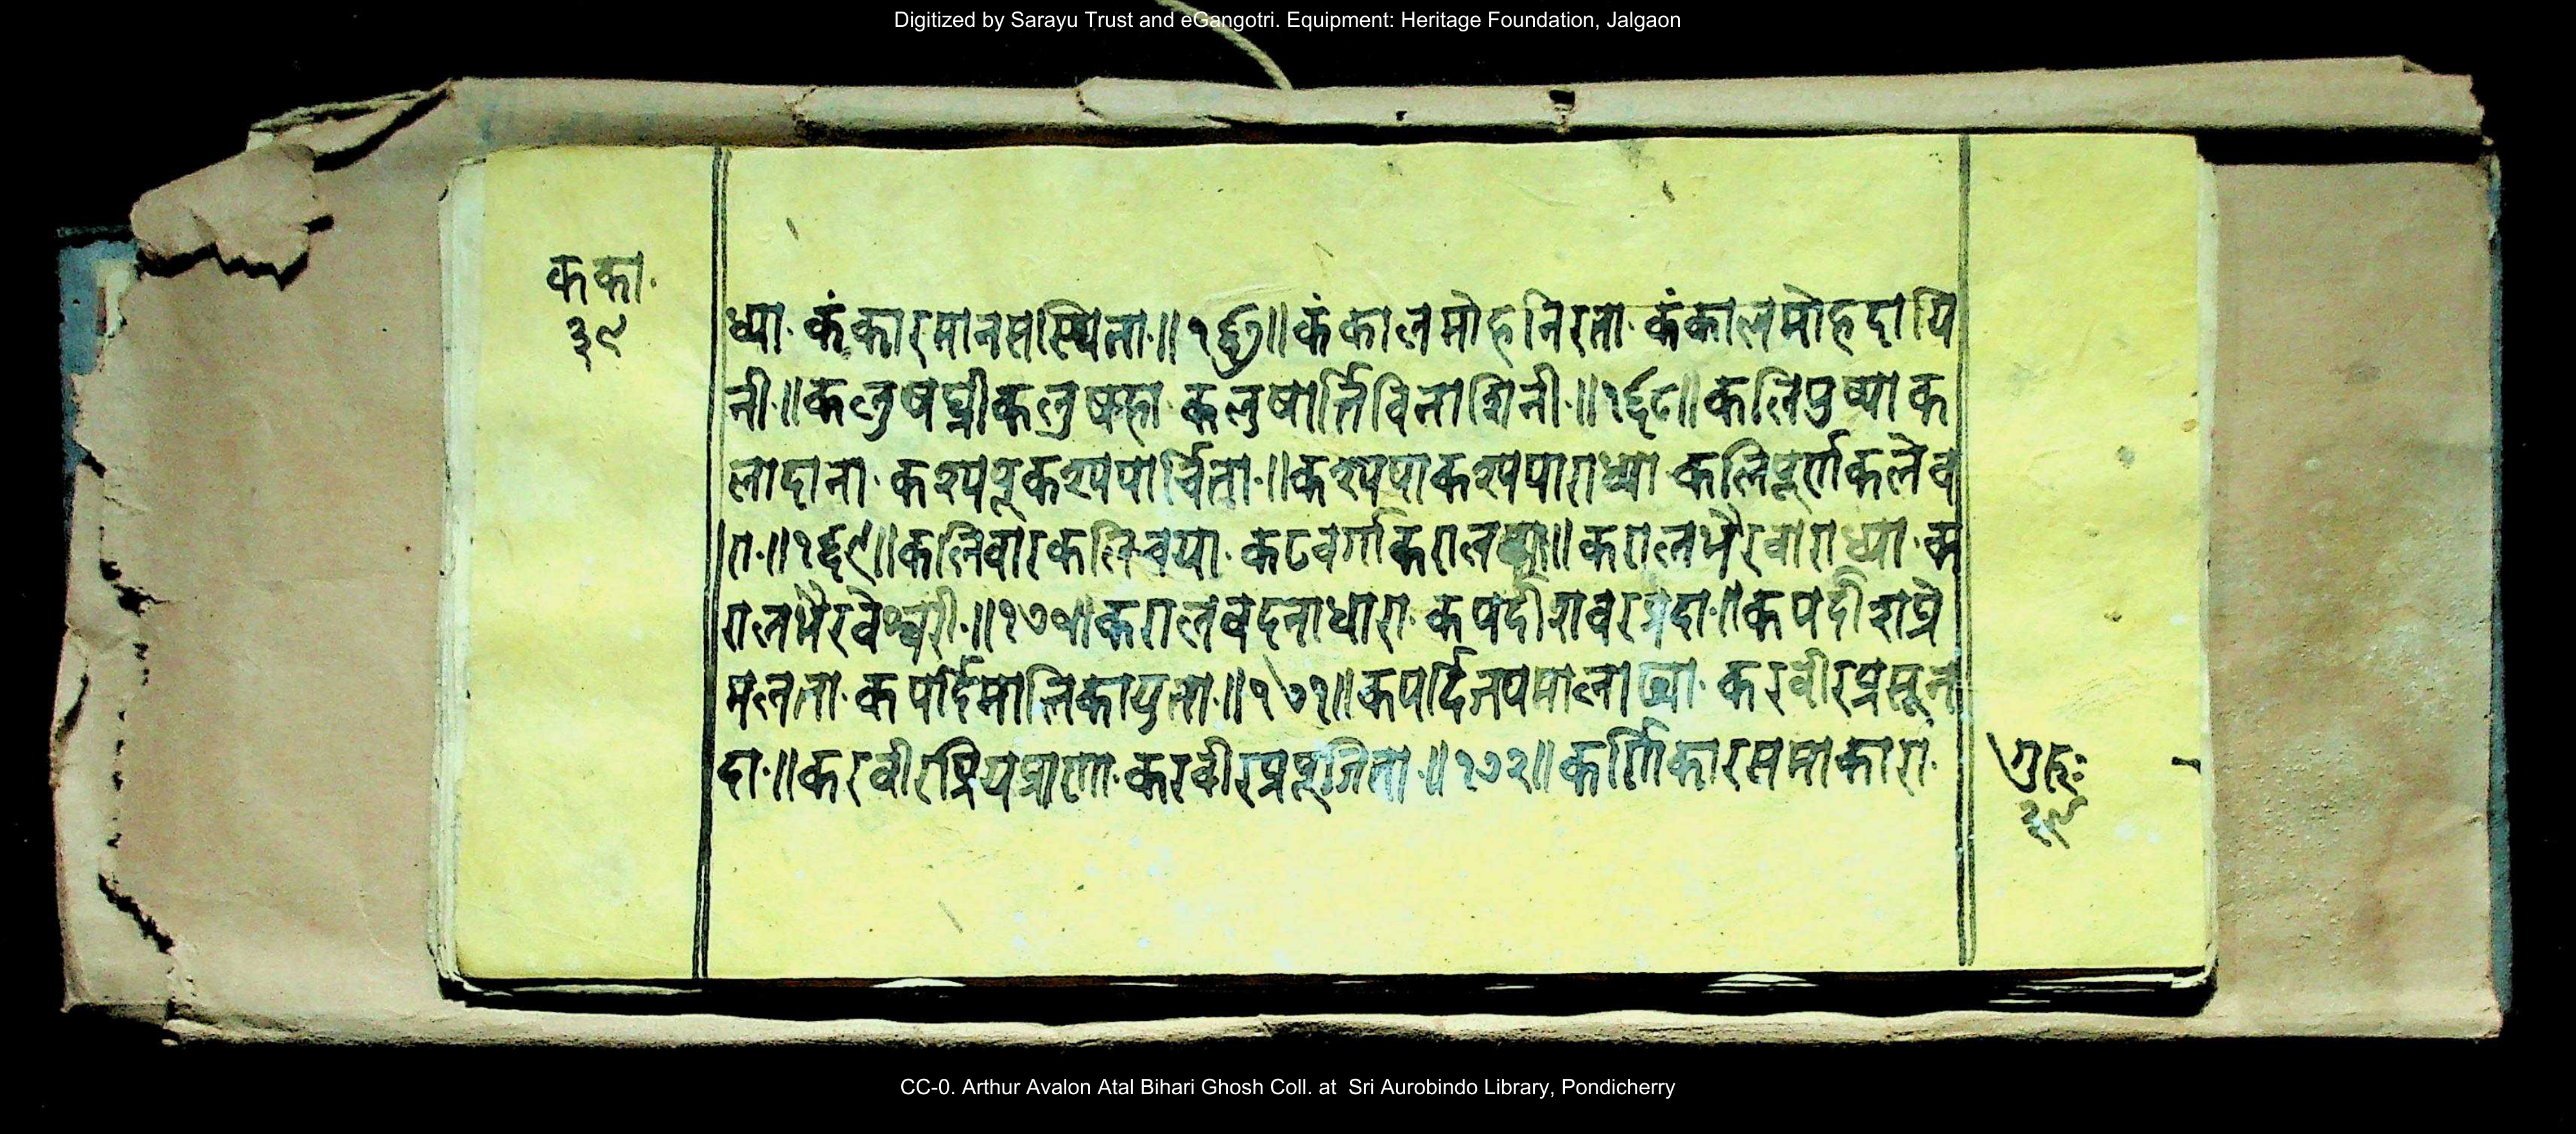 Digitized by Sarayu Trust and eGangotri. Equipment: Heritage Foundation, Jalgaon
क का॰
३९
ध्या॰ कंकारमानसस्थिता॰॥१६७॥कंकालमोहनिरता॰ कंकालमोहदायि
नी॰॥कलुषघ्नीकलुषहा॰ कलुषार्त्तिविनाशिनी॰॥१६८॥कलिपुष्पा क
लादाना॰ कश्यपूकश्यपार्चिता॰॥कश्यपाकश्यपाराध्या॰ कलिपूर्णकलेव
रा॰॥१६९॥कलिवारकलिचया॰ कटवर्गाकराल॥करालभैरवाराध्या॰ क
रालभैरवेश्वरी॰॥१७०॥करालवदनाधारा॰ कपर्दीशवरप्रदा॰॥कपर्दीशप्रे
मलता॰ कपर्दिमालिकायुता॰॥१७१॥कपर्दिजपमालाढ्या॰ करवीरप्रसून
दा॰॥करवीरप्रियप्राणा॰ करवीरप्रपूजिता॰॥१७२॥कर्णिकारसमाकारा॰
गुरुः
३९
CC-0. Arthur Avalon Atal Bihari Ghosh Coll. at Sri Aurobindo Library, Pondicherry